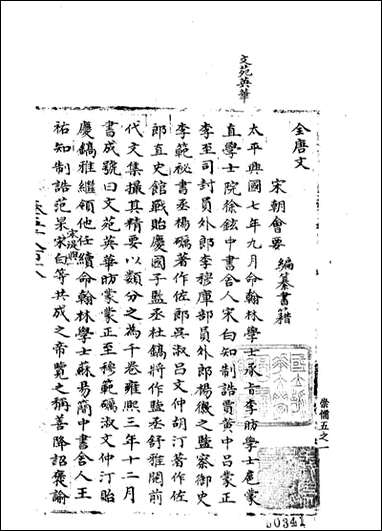 文苑英華
全唐文
宋朝會要 編纂書籍
太平興國七年九月命翰林學士承旨李昉學士扈蒙
直學士院徐鉉中書舍人宋白知制誥賈黃中呂蒙正
李至司封員外郎李穆庫部員外郎楊徽之監察御史
李範祕書丞楊礪著作佐郎吳淑呂文仲胡汀著作佐
郎直史館戰貽慶國子監丞杜鎬將作監丞舒雅閱前
代文集撮其精要以類分之為千卷雍熙三年十二月
書成號曰文苑英華昉蒙蒙正至穆範礪淑文仲汀貽
慶鎬雅繼領他任續命翰林學士蘇易簡中書舍人王
祐知制誥范杲宋湜與宋白等共成之帝覽之稱善降詔褒諭
崇儒五之一
00341